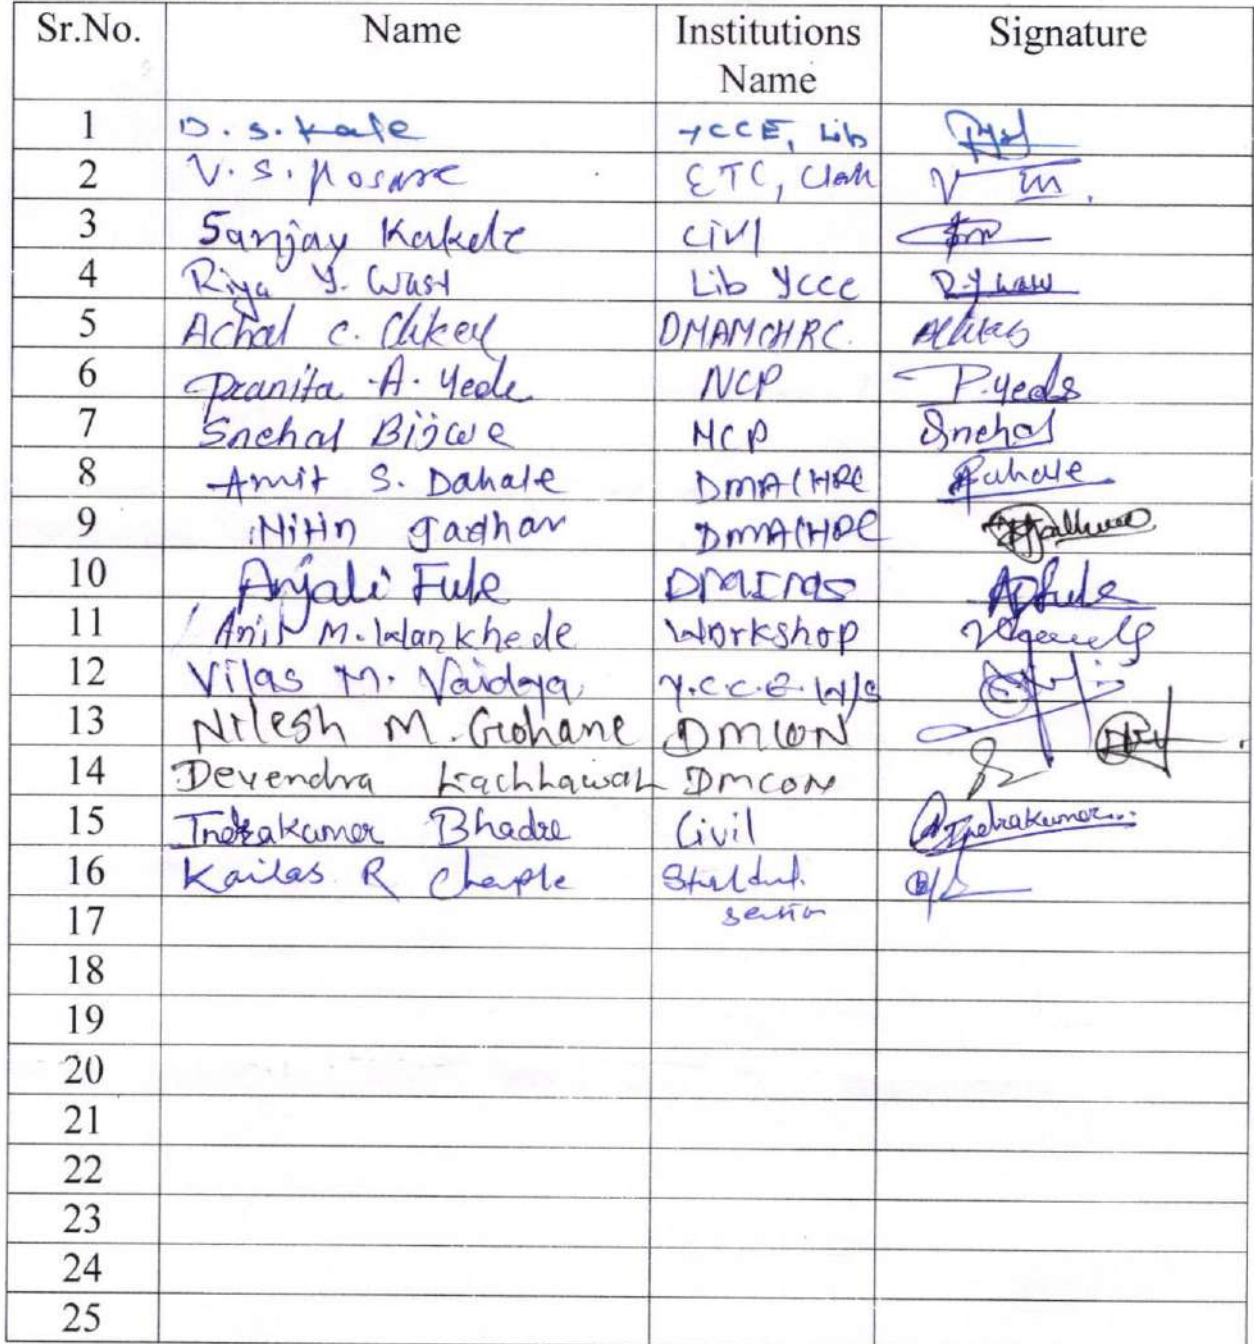 Sr.No. Name Institutions Name Signature
1 D. S. Kale YCCE, Lib
2 V. S. Mosare ETC, Clerk
3 Sanjay Kakde Civil
4 Riya Y. Wasu Lib YCCE R.Y. Wasu
5 Achal C. DMAMCHRC
6 Pranita A. Yede NCP P. Yede
7 Snehal Bijwe NCP Snehal
8 Amit S. Dahale DMACHRC Dahale
9 Nitin Gadhav DMMACHRC
10 Anjali Fule DMIMS AFule
11 Anil M. Wankhede Workshop
12 Vilas M. Vaidya Y.C.C.E. W/S
13 Nilesh M. Gohane DMCON
14 Devendra Kachhawah DMCON
15 Indrakumar Bhadre Civil Indrakumar
16 Kailas R Chaple Student section
17
18
19
20
21
22
23
24
25